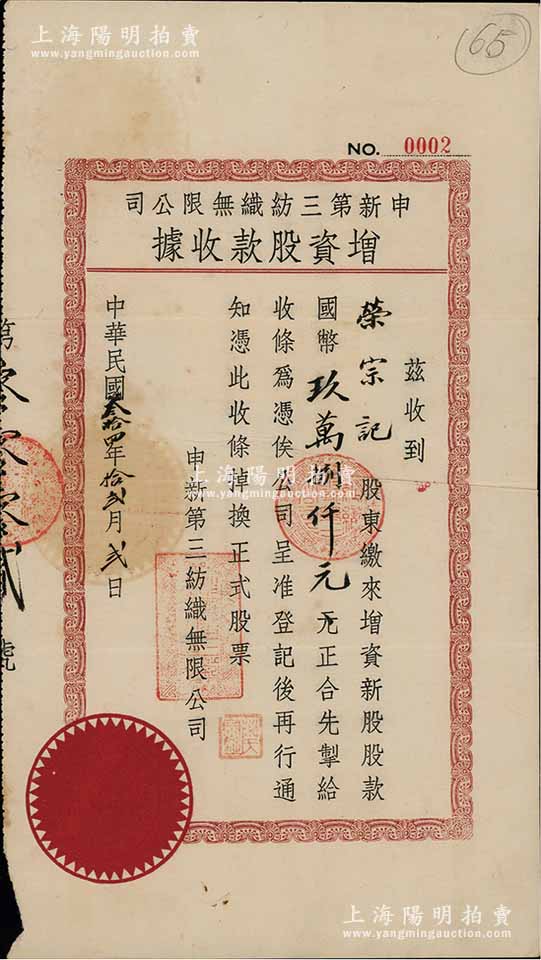 上海陽明拍賣
www.yangmingauction.com
65
NO. 0002
司公限無織紡三第新申
據收款股資增
茲收到
榮宗記 股東繳來增資新股股款
國幣玖萬捌仟元 元正合先掣給
收條為憑俟公司呈准登記後再行通
知憑此收條掉換正式股票
申新第三紡織無限公司
中華民國叁拾四年拾弍月弍日
第零零零貳號
上海陽明拍賣
上海陽明拍賣
www.yangmingauction.com